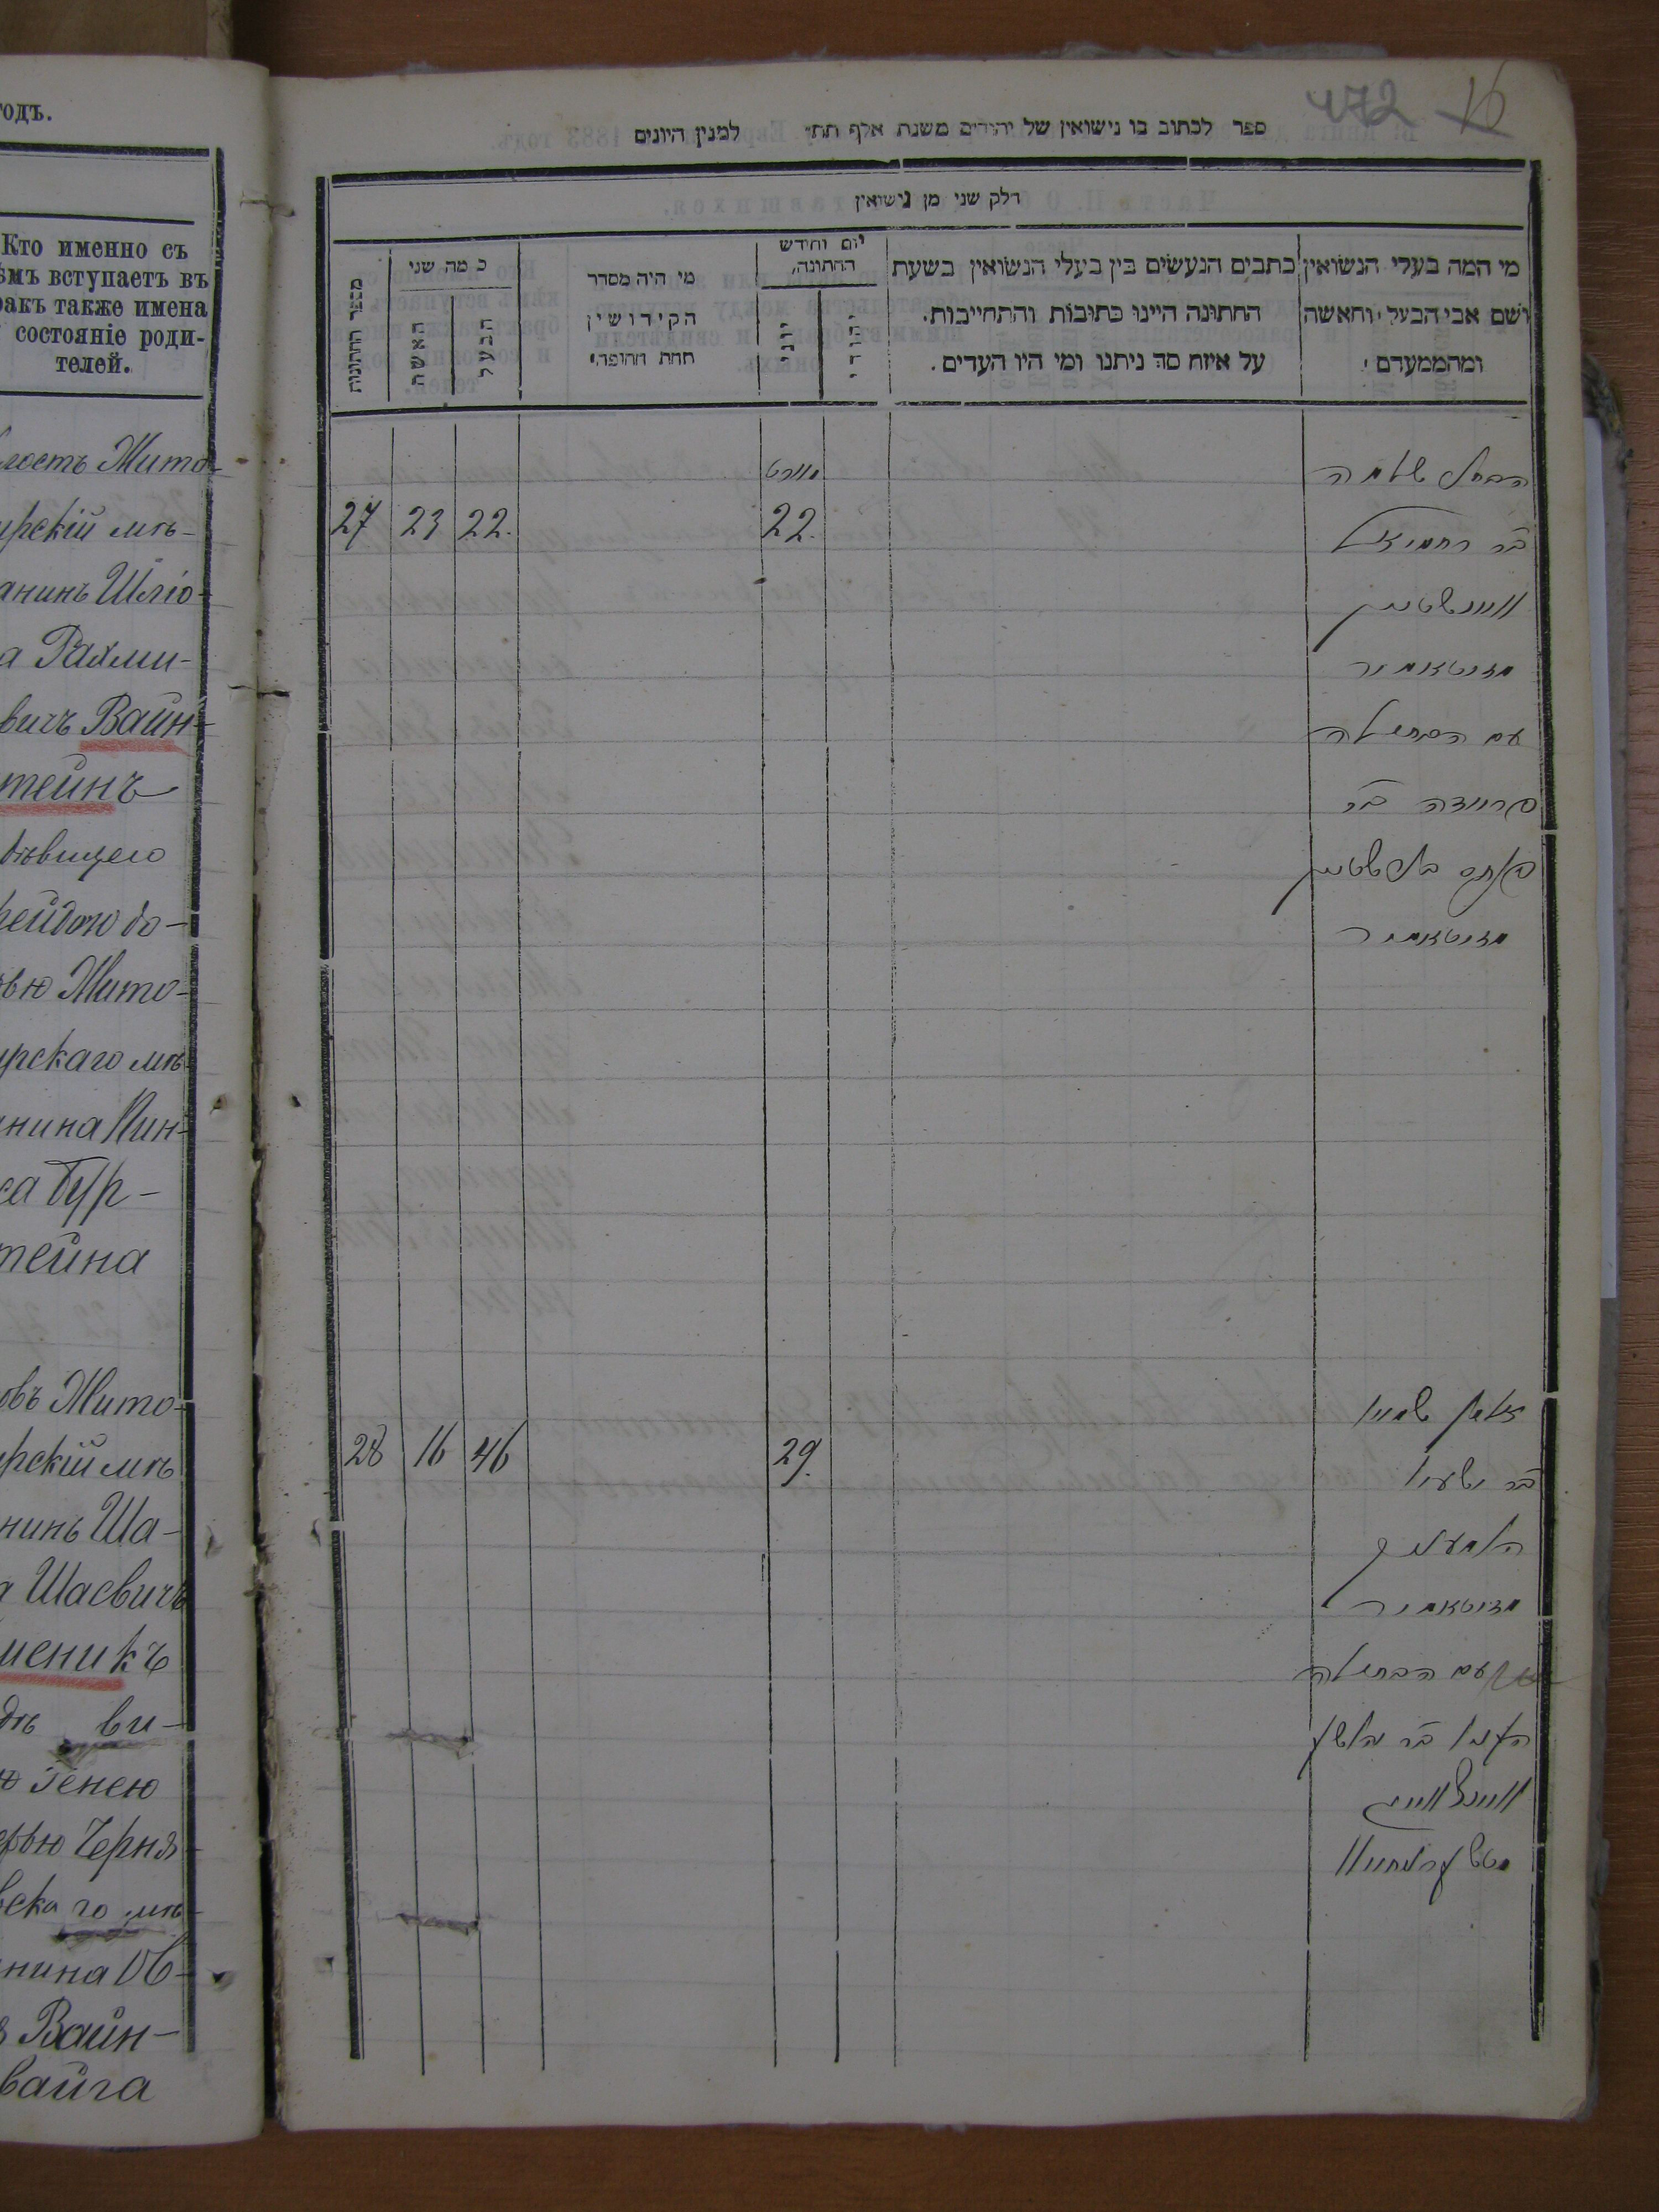 годъ.
Кто именно съ
ѣмъ вступаетъ въ
ракъ также имена
состояніе роди-
телей.
лость Жито-
ирскій мѣ-
анинъ Шлю-
а Рахми-
вичъ Вайн-
тейнъ
дѣвицею
рейдою до-
рью Жито-
ирскаго мѣ
нина Пин-
са Бур-
тейна
овъ Жито-
рскій мѣ
нинъ Ша-
а Шаевичъ
меникъ
ви-
Генею
ерью Черня-
вскаго мѣ-
нина Ов-
Вайн-
вайга
472 16
ספר לכתוב בו נישואין של יהודים משנת אלף תתי למנין היונים
חלק שני מן נישואין
מי המה בעלי הנשואין
ושם אבי הבעל והאשה
ומהממעדם
כתבים הנעשים בין בעלי הנשואין בשעת
החתונה היינו כתובות והתחייבות.
על איזח סך ניתנו ומי היו העדים.
יום וחידש
החתונה,
יהודי
יוני
מי היה מסדר
הקידושין
תחת החופה.
כמה שני
הבעל
האשה
מספר החתונות
הבחור שלמה
ב״ר רחמיאל
וויינשטיין
מזיטאמיר
עם הבתולה
פריידה ב״ר
פנחס בורשטיין
מזיטאמיר
מערט
22.
22.
23
27
ב״ר ישעיו
מזיטאמיר
עם הבתולה
וויינצווייג
29.
46
16
28